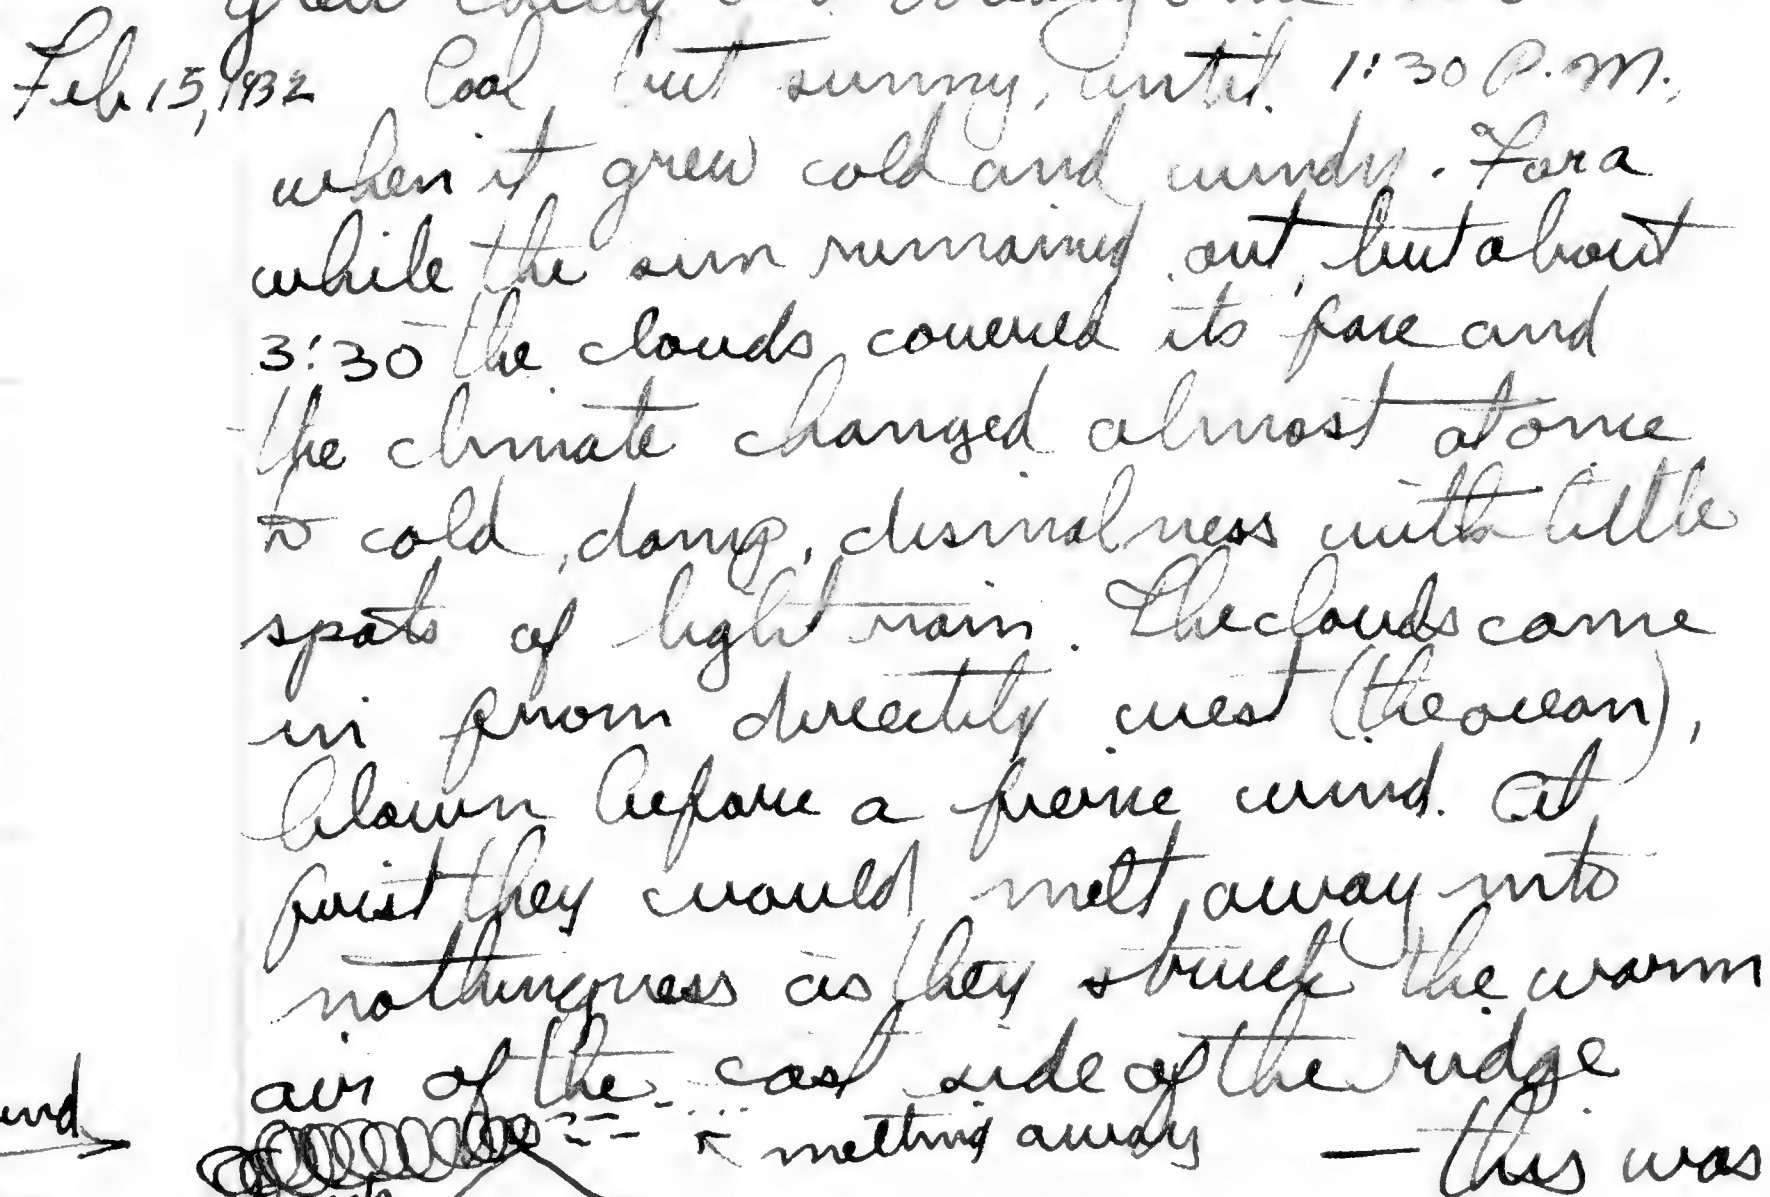 Feb 15, 1932 Cool, but sunny, until 1:30 P.M.,
when it grew cold and windy. For a
while the sun remained out, but about
3:30 the clouds covered its face and
the climate changed almost at once
to cold, damp, dismalness with little
spats of light rain. The clouds came
in from directly west (the ocean),
blown before a fierce wind. At
first they would melt away into
nothingness as they struck the warm
air of the east side of the ridge
melting away — this was